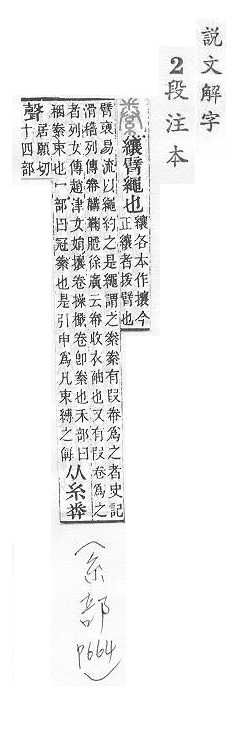 說文解字
2段注本
絭
纕臂繩也
纕各本作攘今
正纕者援臂也
臂褎易流以繩約之是繩謂之絭絭有叚帣爲之者史記
滑稽列傳帣鞲鞠䠆徐廣云帣收衣袖也又有叚卷爲之
者列女傳趙津女娟攘卷操檝卷卽絭也禾部曰
稛絭束也冖部曰冠絭也是引申爲凡束縛之偁
从糸𢍏
聲
居願切
十四部
(糸部 P664)